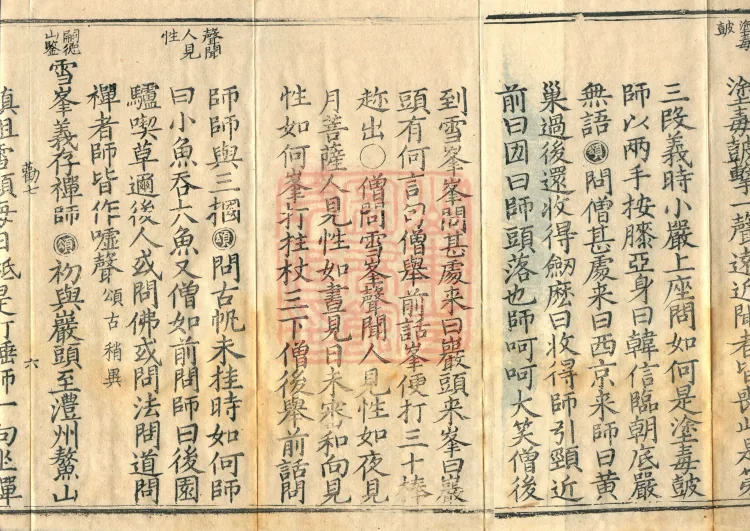 塗毒鼓
塗毒鼓擊一聲遠近聞者皆喪此亦
三段義時小嚴上座問如何是塗毒鼓
師以兩手按膝亞身曰韓信臨朝底嚴
無語頌問僧甚處來曰西京來師曰黃
巢過後還收得劒麽曰收得師引頸近
前曰㘞曰師頭落也師呵呵大笑僧後
到雪峯峯問甚處來曰巖頭來峯曰巖
頭有何言句僧舉前話峯便打三十棒
趂出○僧問雪峯聲聞人見性如夜見
月菩薩人見性如晝見日未審和尚見
性如何峯打拄杖三下僧後舉前話問
聲聞
人見
性
師師與三摑頌問古帆未挂時如何師
曰小魚吞大魚又僧如前問師曰後園
驢喫草邇後人或問佛或問法問道問
禪者師皆作噓聲 頌古稍異
嗣德
山鑒
雪峯義存禪師頌初與巖頭至澧州鰲山
勸七 六
鎮阻雪頭每日秪是打睡師一向坐禪